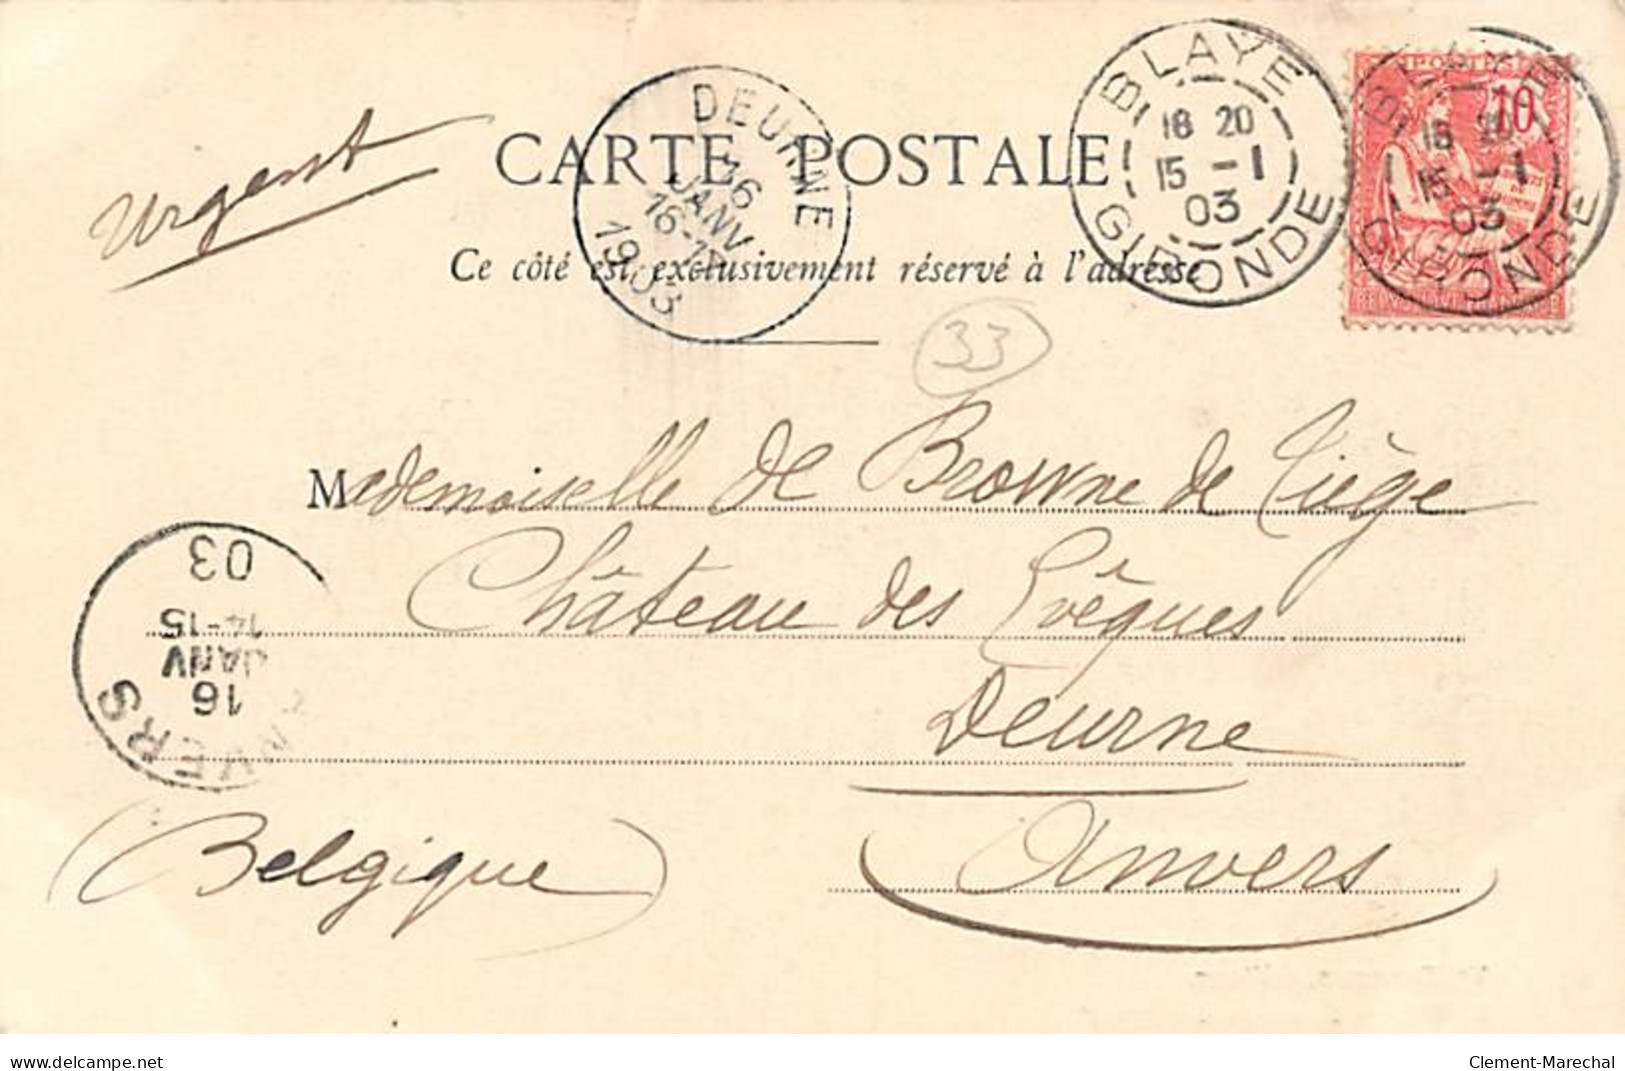 Urgent
CARTE POSTALE
Ce côté est exclusivement réservé à l'adresse
DEURNE
16
JANV
1903
BLAYE
18 20
15 -1
03
GIRONDE
BLAYE
18 20
15 -1
03
GIRONDE
10
33
Mademoiselle de Browne de Tiège
Château des Evêques
Deurne
Anvers
(Belgique)
ANVERS
16
JANV
14-15
03
delcampe.net
Clement-Marechal